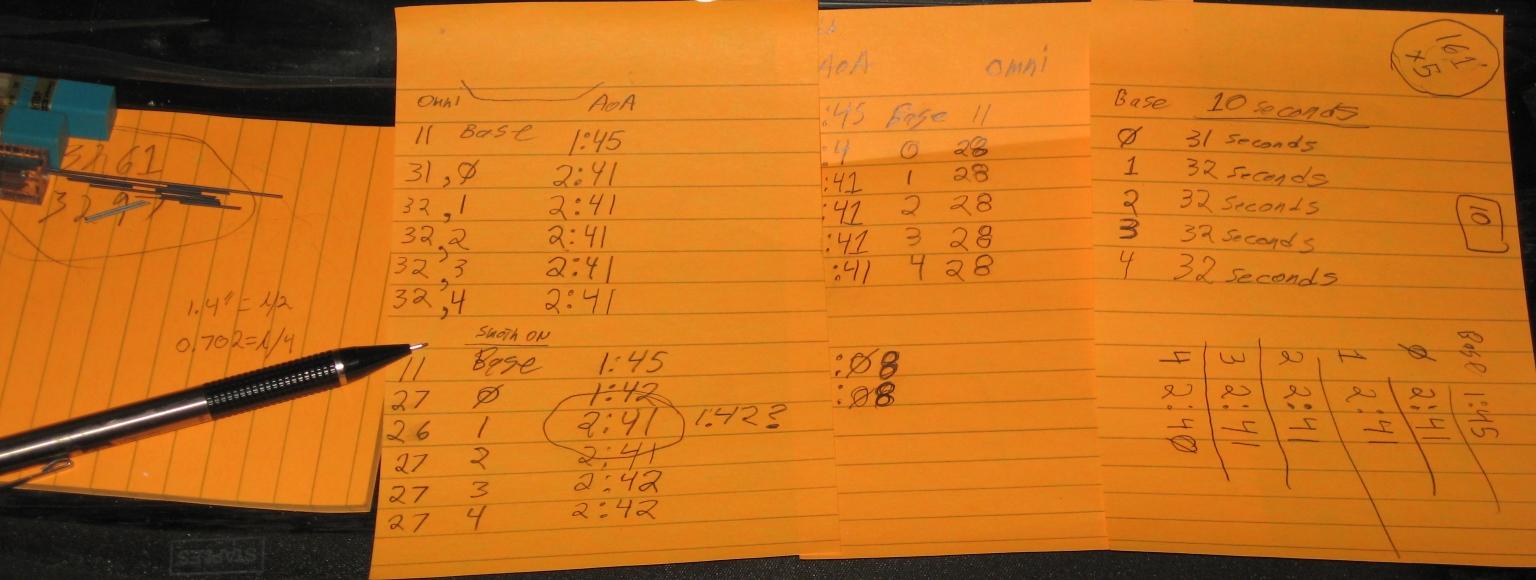 3261
1.4" = λ/2
0.702=λ/4
Omni AoA
11 Base 1:45
31,Ø 2:41
32,1 2:41
32,2 2:41
32,3 2:41
32,4 2:41
Smoth ON
11 Base 1:45
27 Ø 1:42
26 1 2:41 1:42?
27 2 2:41
27 3 2:42
27 4 2:42
AoA Omni
:45 Base 11
:4 0 28
:41 1 28
:41 2 28
:41 3 28
:41 4 28
:Ø8
:Ø8
161
x5
Base 10 seconds
Ø 31 seconds
1 32 seconds
2 32 seconds
3 32 seconds
4 32 seconds
10
Base 1:45
Ø 2:41
1 2:41
2 2:41
3 2:41
4 2:4Ø
STAPLES